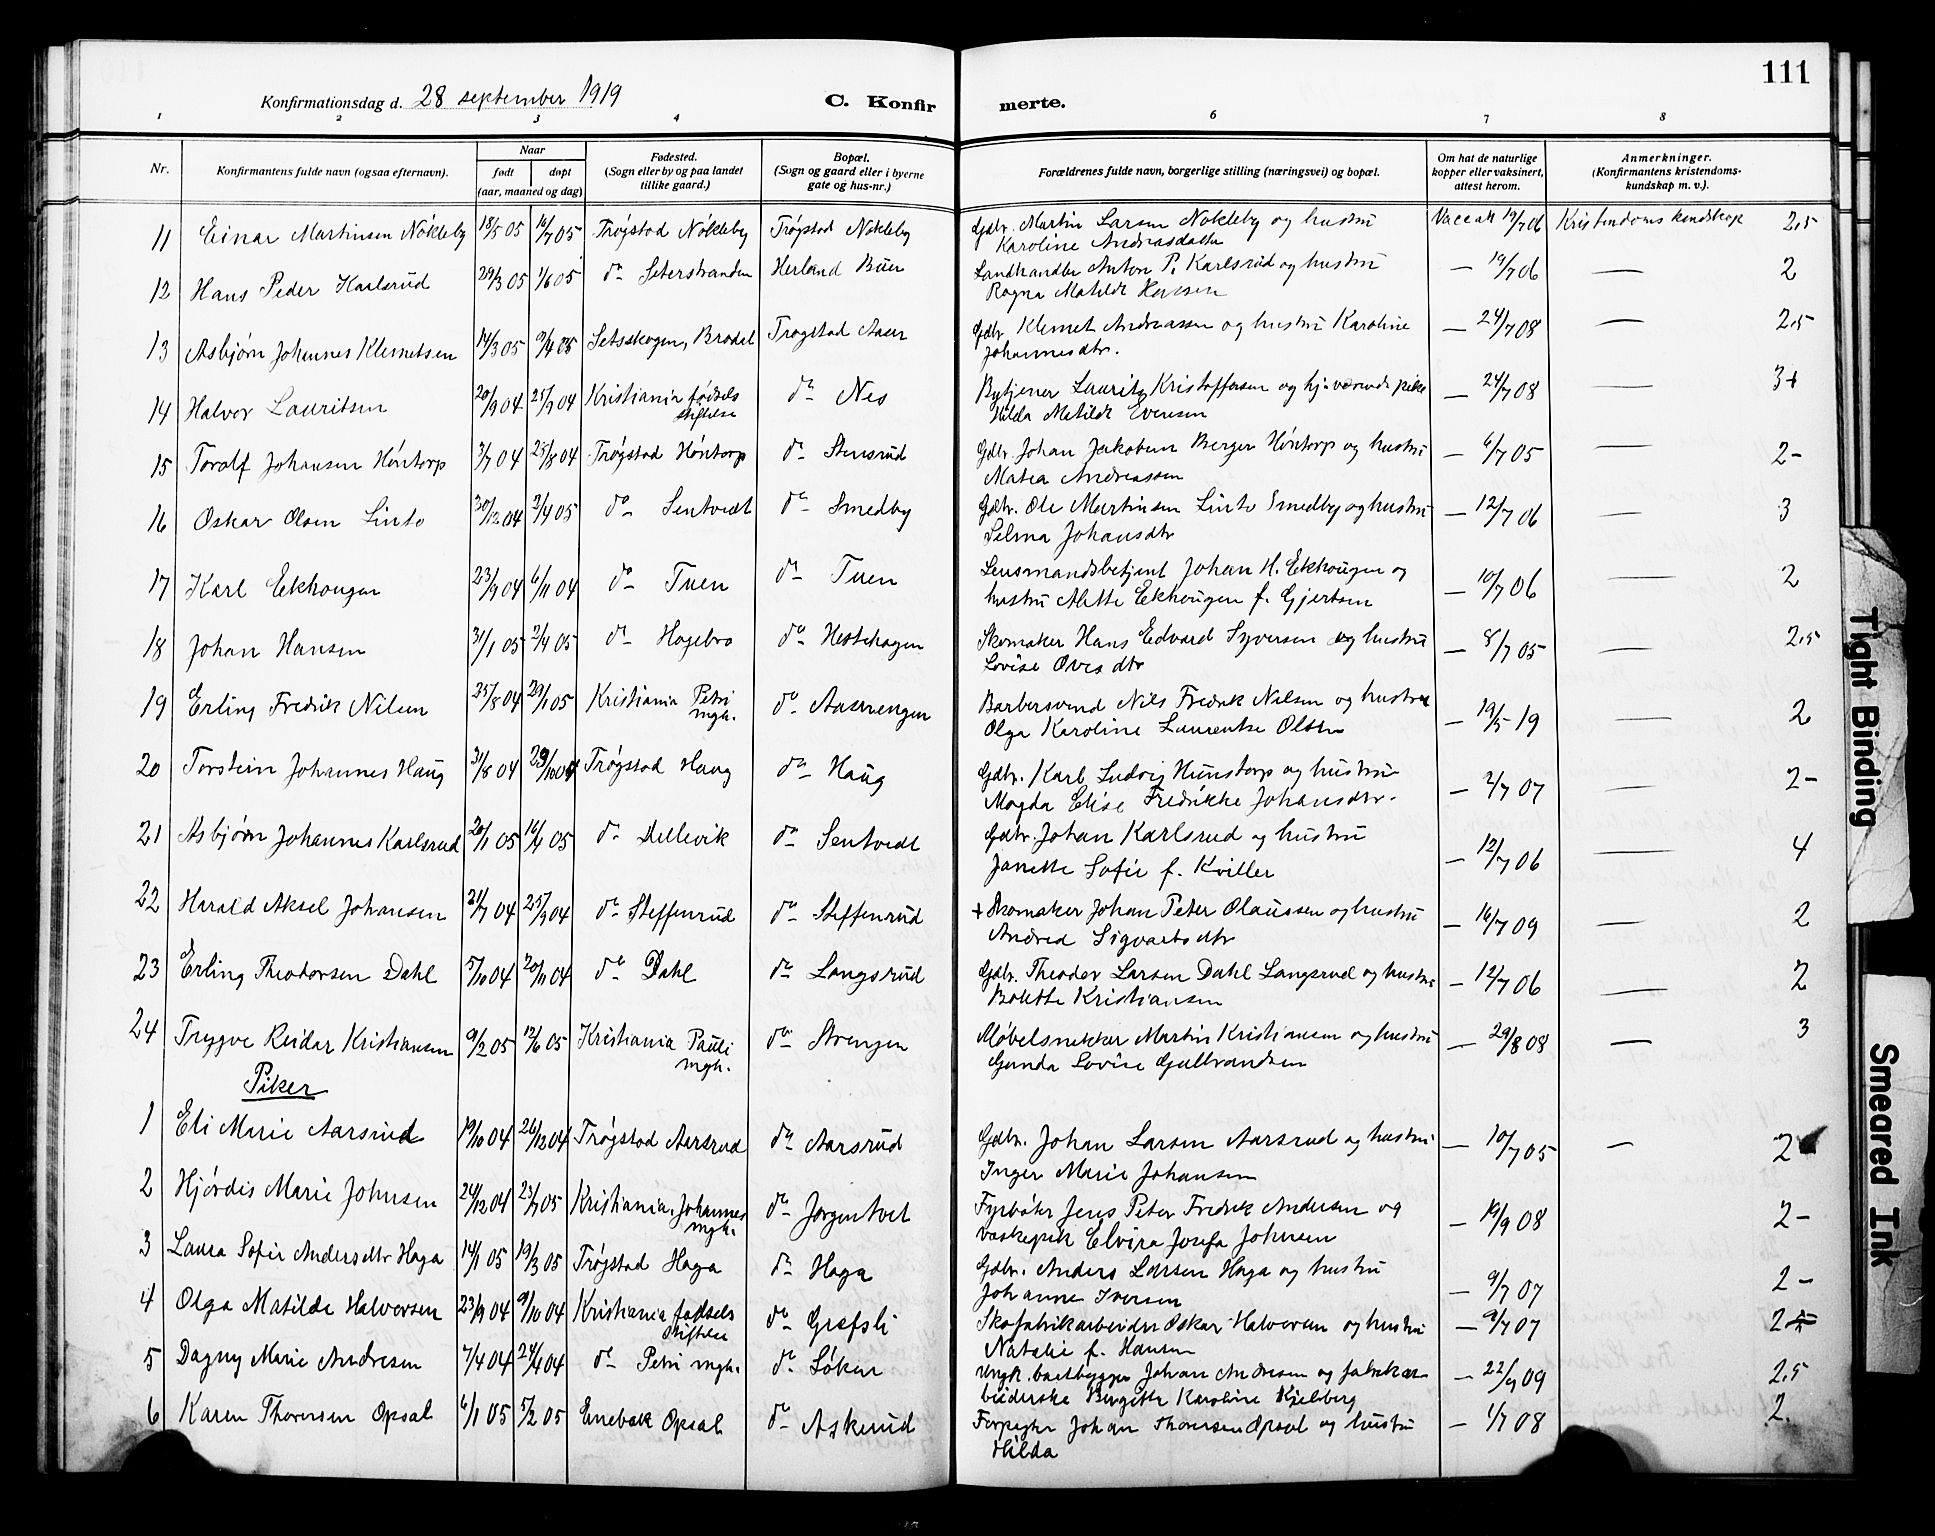 111
Konfirmationsdag d. 28 september 1919
C. Konfir
merte.
1 2 3 4 5 6 7 8
Nr.
Konfirmantens fulde navn (ogsaa efternavn).
Naar
født
døpt
(aar, maaned og dag)
Fødested.
(Sogn eller by og paa landet
tillike gaard.)
Bopæl.
(Sogn og gaard eller i byerne
gate og hus-nr.)
Forældrenes fulde navn, borgerlige stilling (næringsvei) og bopæl.
Om hat de naturlige
kopper eller vaksinert,
attest herom.
Anmerkninger.
(Konfirmantens kristendoms-
kundskap m. v.).
11 Einar Martinsen Nökleby 18/5 05 16/7 05 Trøgstad Nökleby Trøgstad Nökleby Gdbr. Martin Larsen Nökleby og hustru Vacc att 19/7 06 Kristendoms kundskap 2,5
Karoline Andreasdatter
12 Hans Peder Karlsrud 29/3 05 1/6 05 do Seterstranden Herland Buer Landhandler Anton P. Karlsrud og hustru — 19/7 06 — 2
Ragna Matilde Hansen
13 Asbjørn Johannes Klemetsen 14/3 05 9/4 05 Setskogen, Bradal Trøgstad Aaser Gdbr. Klemet Andreassen og hustru Karoline — 24/7 08 — 2,5
Johannesdtr.
14 Halvor Lauritsen 20/9 04 25/9 04 Kristiania fødsels do Nes Bytjener Lauritz Kristoffersen og hj.værende pike — 24/7 08 — 3+
stiftelse
Hilda Matilde Evensen
15 Toralf Johansen Höntorp 3/7 04 28/8 04 Trøgstad Höntorp do Stensrud Gdbr. Johan Jakobsen Berger Höntorp og hustru — 6/7 05 — 2-
Matea Andreassen
16 Oskar Olsen Linto 30/12 04 2/4 05 do Sentvedt do Smedby Gdbr. Ole Martinsen Linto Smedby og hustru — 12/7 06 — 3
Selma Johansdtr
17 Karl Ekhougen 23/9 04 6/11 04 do Tuen do Tuen Lensmandsbetjent Johan H. Ekhougen og — 10/7 06 — 2
hustru Alette Ekhougen f. Gjertsen
18 Johan Hansen 31/1 05 2/4 05 do Hagebro do Hestehagen Skomaker Hans Edvard Syversen og hustru — 8/7 05 — 2,5
Lovise Ovesdtr
19 Erling Fredrik Nilsen 25/8 04 29/1 05 Kristiania Petri do Aaserengen Barbersvend Nils Fredrik Nilsen og hustru — 19/5 19 — 2
mgh.
Olga Karoline Laurentse Olsen
20 Torstein Johannes Haug 31/8 04 23/10 04 Trøgstad Haug do Haug Gdbr. Karl Ludvig Hunstorp og hustru — 2/7 07 — 2-
Magda Elise Fredrikke Johansdtr.
21 Asbjørn Johannes Karlsrud 20/1 05 16/4 05 do Dillevik do Sentvedt Gdbr. Johan Karlsrud og hustru — 12/7 06 — 4
Janette Sofie f. Kviller
22 Harald Aksel Johansen 21/7 04 25/9 04 do Steffenrud do Steffenrud + Skomaker Johan Peter Olaussen og hustru — 16/7 09 — 2
Andrea Sigvartsdtr
23 Erling Theodorsen Dahl 5/10 04 20/11 04 do Dahl do Langsrud Gdbr. Theodor Larsen Dahl Langsrud og hustru — 12/7 06 — 2
Bolette Kristiansen
24 Trygve Reidar Kristiansen 9/2 05 12/6 05 Kristiania Pauli do Strengen Møbelsnekker Martin Kristiansen og hustru — 29/8 08 — 3
mgh.
Gunda Lovise Gulbrandsen
Piker
1 Eli Marie Aarsrud 19/10 04 26/12 04 Trøgstad Aarsrud do Aarsrud Gdbr. Johan Larsen Aarsrud og hustru — 10/7 05 — 2
Inger Marie Johansen
2 Hjördis Marie Johnsen 24/12 04 23/7 05 Kristiania, Johannes do Jørgentvet Fyrbøter Jens Peter Fredrik Andersen og — 19/9 08 2-
mgh.
vaskepike Elvira Josefa Johnsen
3 Laura Sofie Andersdtr Haga 14/1 05 19/3 05 Trøgstad Haga do Haga Gdbr. Anders Larsen Haga og hustru — 9/7 07 2-
Johanne Iversen
4 Olga Matilde Halvorsen 23/9 04 9/10 04 Kristiania fødsels do Grefsli Skofabrikarbeider Oskar Halvorsen og hustru — 9/7 07 2
stiftelse
Natalie f. Hansen
5 Dagny Marie Andresen 7/4 04 24/4 04 do Petri mgh. do Løken Ungk. baatbygger Johan Andresen og fabrikar- — 22/9 09 2,5
beiderske Birgitte Karoline Kjelberg
6 Karen Thoresen Opsal 6/1 05 5/2 05 Enebak Opsal do Askerud Forpagter Johan Thoresen Opsal og hustru — 1/7 08 2.
Hilda
Tight Binding
Smeared Ink